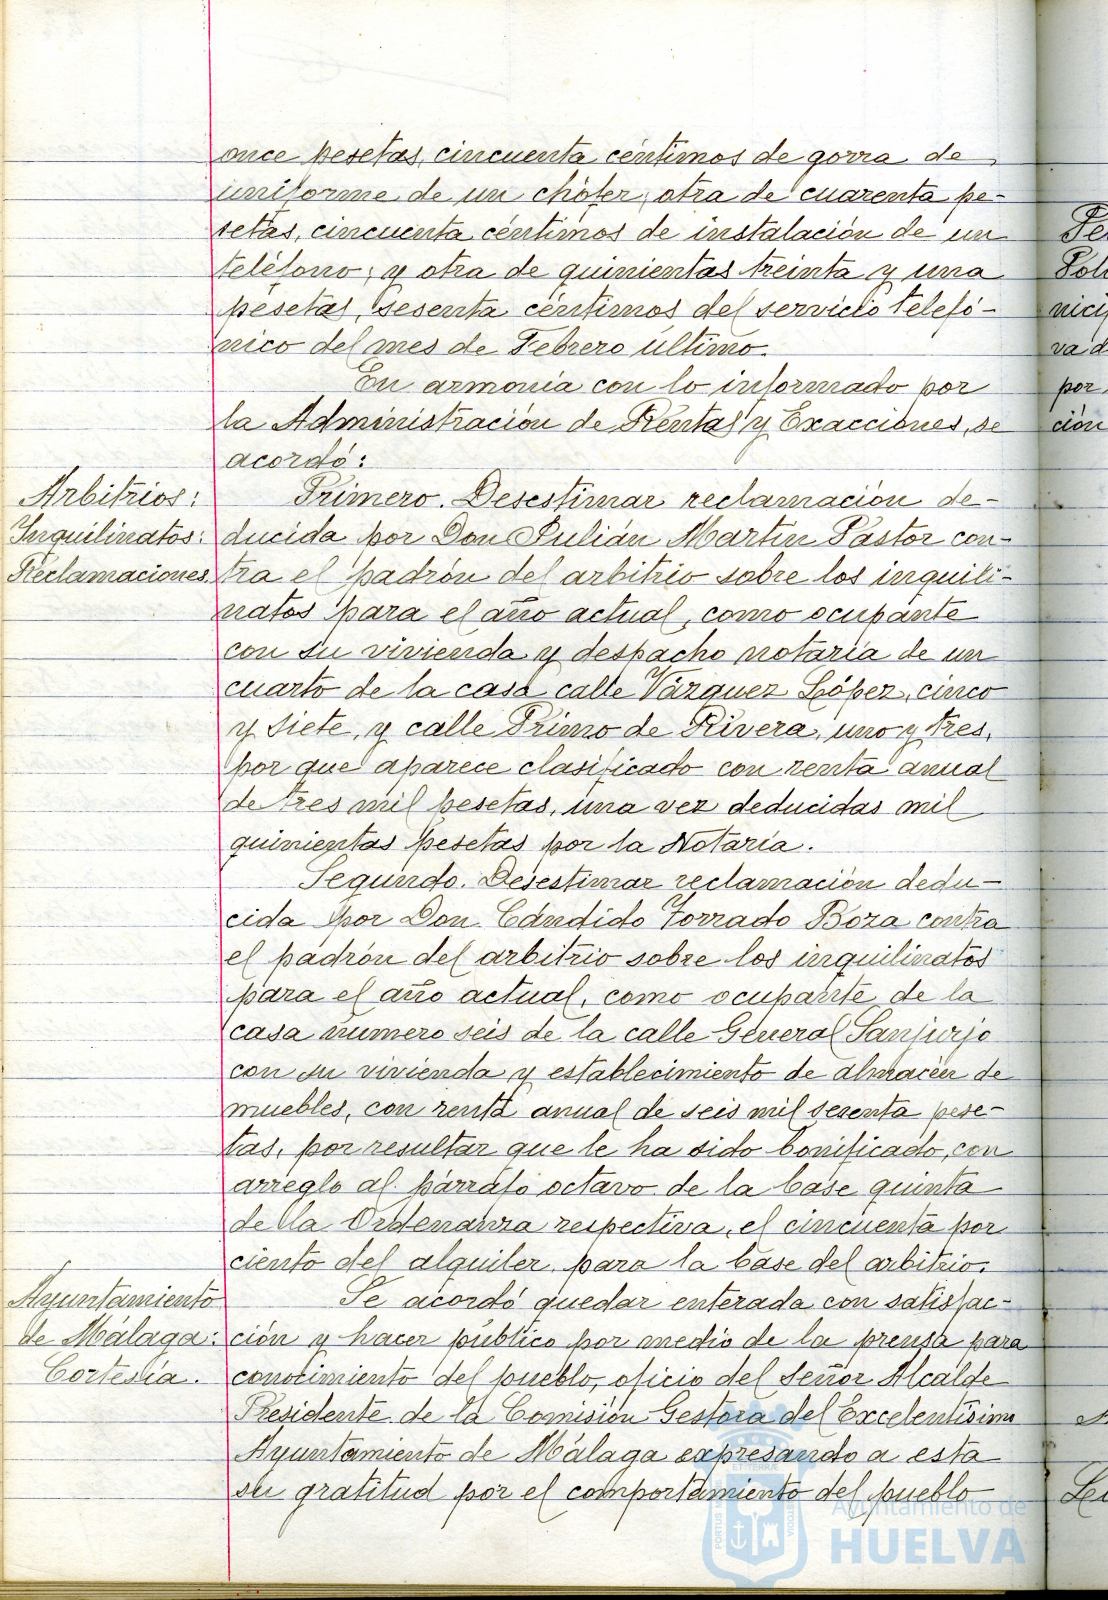 once pesetas, cincuenta céntimos de gorra de
uniforme de un chófer, otra de cuarenta pe-
setas, cincuenta céntimos de instalación de un
teléfono; y otra de quinientas treinta y una
pesetas, sesenta céntimos del servicio telefó-
nico del mes de Febrero último.
En armonía con lo informado por
la Administración de Rentas y Exacciones, se
acordó:
Arbitrios:
Inquilinatos:
Reclamaciones.
Primero. Desestimar reclamación de-
ducida por Don Julián Martín Pastor con-
tra el padrón del arbitrio sobre los inquili-
natos para el año actual, como ocupante
con su vivienda y despacho notaría de un
cuarto de la casa calle Vázquez López, cinco
y siete, y calle Primo de Rivera, uno y tres,
por que aparece clasificado con renta anual
de tres mil pesetas, una vez deducidas mil
quinientas pesetas por la Notaría.
Segundo. Desestimar reclamación dedu-
cida por Don Cándido Torrado Boza contra
el padrón del arbitrio sobre los inquilinatos
para el año actual, como ocupante de la
casa número seis de la calle General Sanjurjo
con su vivienda y establecimiento de almacén de
muebles, con renta anual de seis mil sesenta pese-
tas, por resultar que le ha sido bonificado, con
arreglo al párrafo octavo de la base quinta
de la Ordenanza respectiva, el cincuenta por
ciento del alquiler para la base del arbitrio.
Ayuntamiento
de Málaga:
Cortesía.
Se acordó quedar enterada con satisfac-
ción y hacer público por medio de la prensa para
conocimiento del pueblo, oficio del Señor Alcalde
Presidente de la Comisión Gestora del Excelentísimo
Ayuntamiento de Málaga expresando a esta
su gratitud por el comportamiento del pueblo
Pe
Poli
nicip
va d
por
ción
Ayuntamiento de
HUELVA